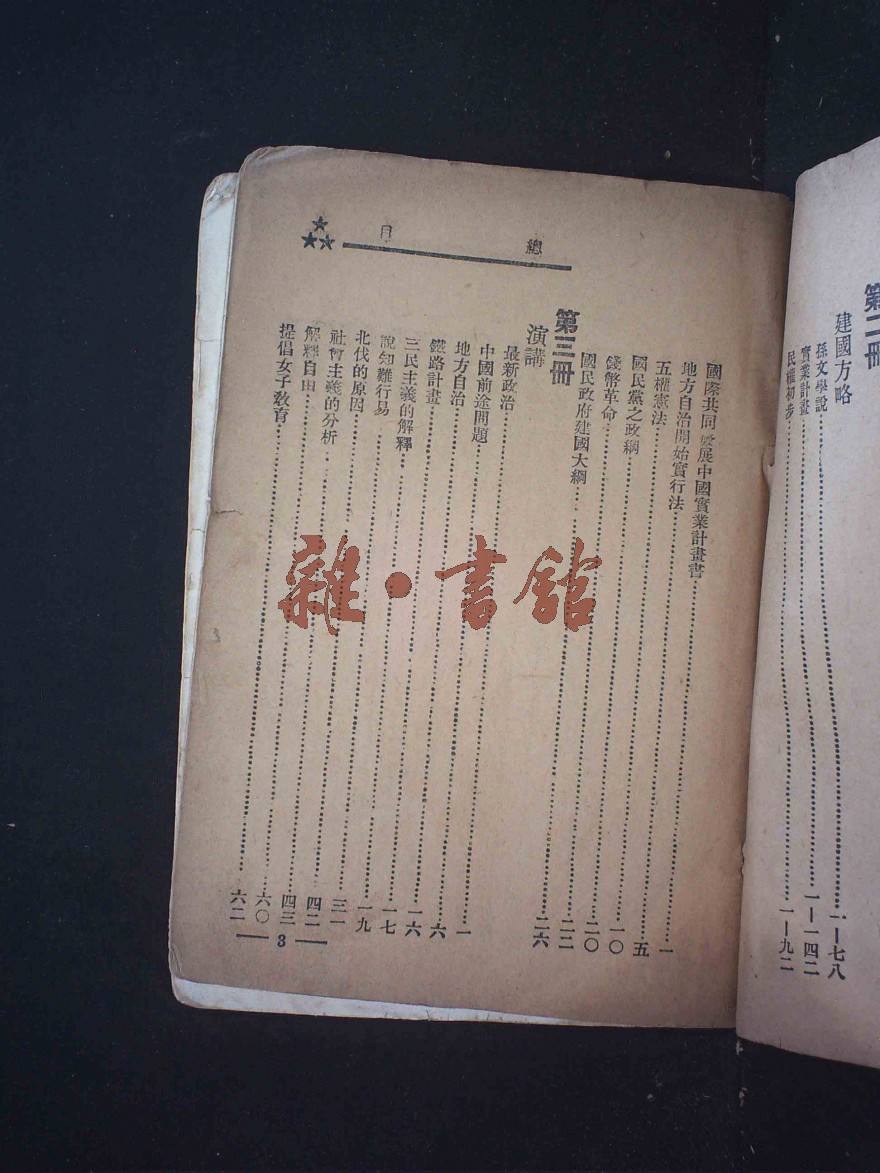 第二冊
建國方略
孫文學說……一—七八
實業計畫……一—一四二
民權初步……一—九二
總目
國際共同發展中國實業計畫書……一
地方自治開始實行法……五
五權憲法……一〇
國民黨之政綱……二〇
錢幣革命……二二
國民政府建國大綱……二六
第三冊
演講
最新政治……一
中國前途問題……六
地方自治……一六
鐵路計畫……一七
三民主義的解釋……一九
說知難行易……三一
北伐的原因……四二
社會主義的分析……四三
解釋自由……六〇
提倡女子教育……六二
3
雜·書館